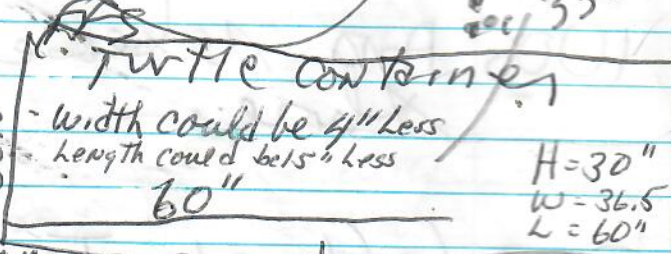 Turtle container
- width could be 4" Less
- Length could be 15" Less
60"
H = 30"
W = 36.5
L = 60"